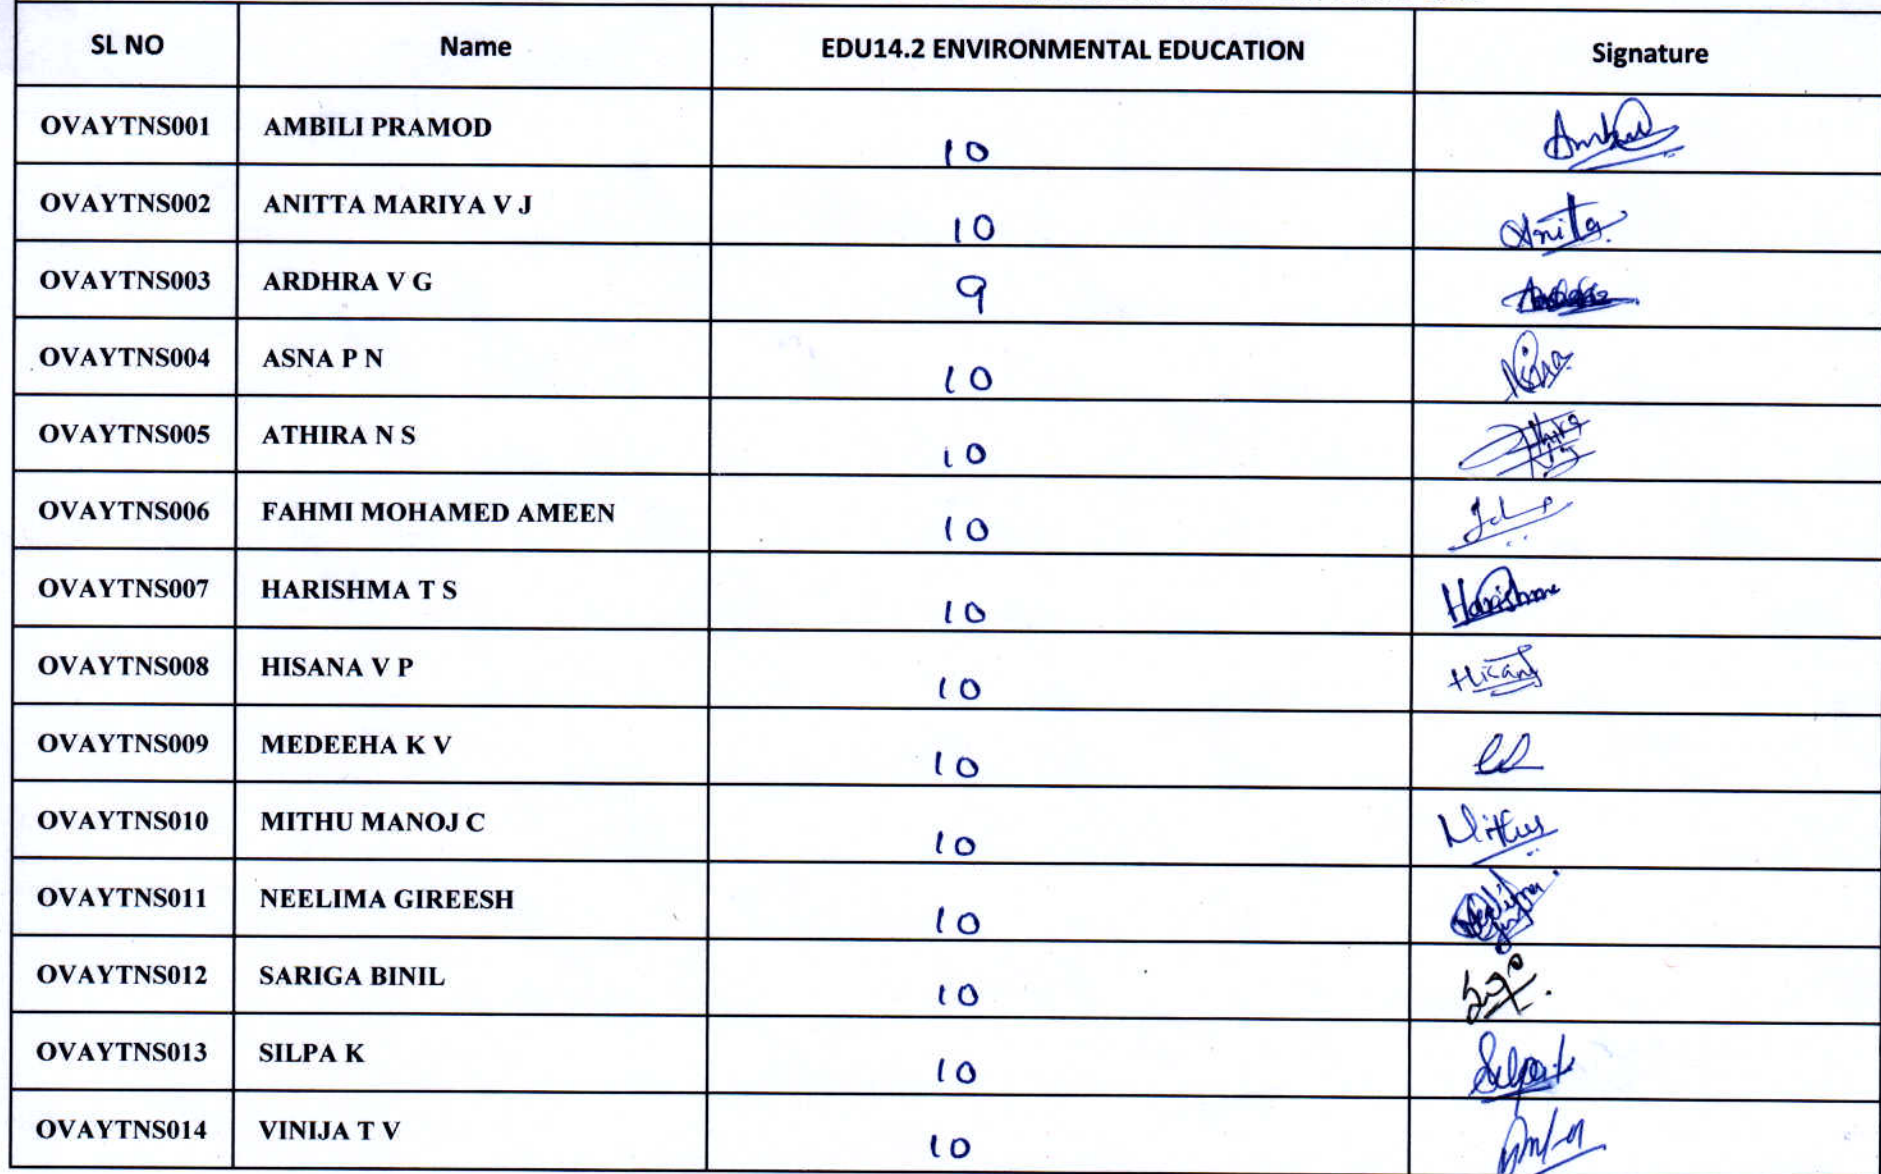 SL NO Name EDU14.2 ENVIRONMENTAL EDUCATION Signature
OVAYTNS001 AMBILI PRAMOD 10
OVAYTNS002 ANITTA MARIYA V J 10 Anitta
OVAYTNS003 ARDHRA V G 9
OVAYTNS004 ASNA P N 10
OVAYTNS005 ATHIRA N S 10
OVAYTNS006 FAHMI MOHAMED AMEEN 10
OVAYTNS007 HARISHMA T S 10 Harishma
OVAYTNS008 HISANA V P 10 Hisana
OVAYTNS009 MEDEEHA K V 10
OVAYTNS010 MITHU MANOJ C 10 Mithu
OVAYTNS011 NEELIMA GIREESH 10
OVAYTNS012 SARIGA BINIL 10
OVAYTNS013 SILPA K 10 Silpa K
OVAYTNS014 VINIJA T V 10